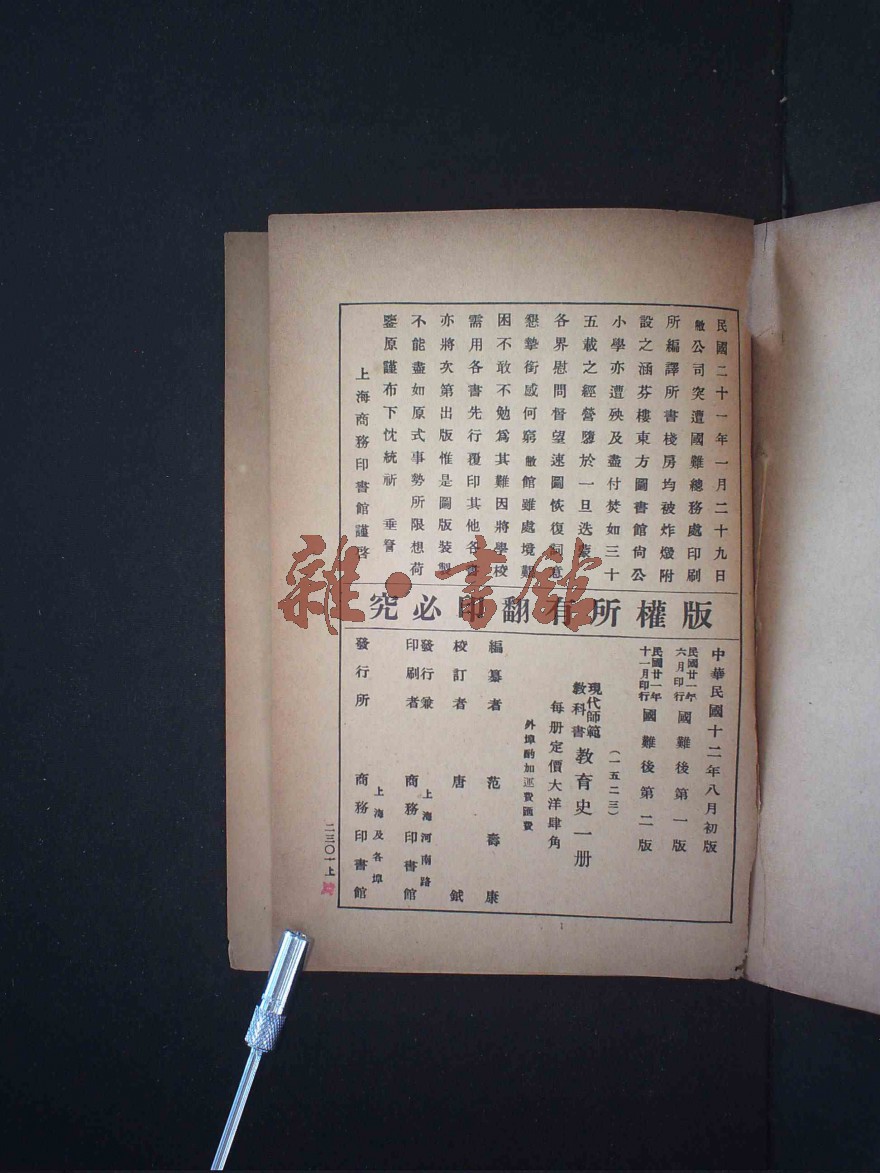 民國二十一年一月二十九日
敝公司突遭國難總務處印刷
所編譯所書棧房均被炸燬附
設之涵芬樓東方圖書館尚公
小學亦遭殃及盡付焚如三十
五載之經營隳於一旦迭蒙
各界慰問督望速圖恢復詞意
懇摯銜感何窮敝館雖處境艱
困不敢不勉爲其難因將學校
需用各書先行覆印其他各書
亦將次第出版惟是圖版裝製
不能盡如原式事勢所限想荷
鑒原謹布下忱統祈 垂詧
上海商務印書館謹啓
版權所有翻印必究
中華民國十二年八月初版
民國廿一年六月印行 國難後第一版
民國廿一年十一月印行 國難後第二版
(一五二三)
現代師範教科書 教育史一册
每册定價大洋肆角
外埠酌加運費匯費
編纂者 范壽康
校訂者 唐鉞
發行兼印刷者 上海河南路 商務印書館
發行所 上海及各埠 商務印書館
二三〇一上
雜·書館